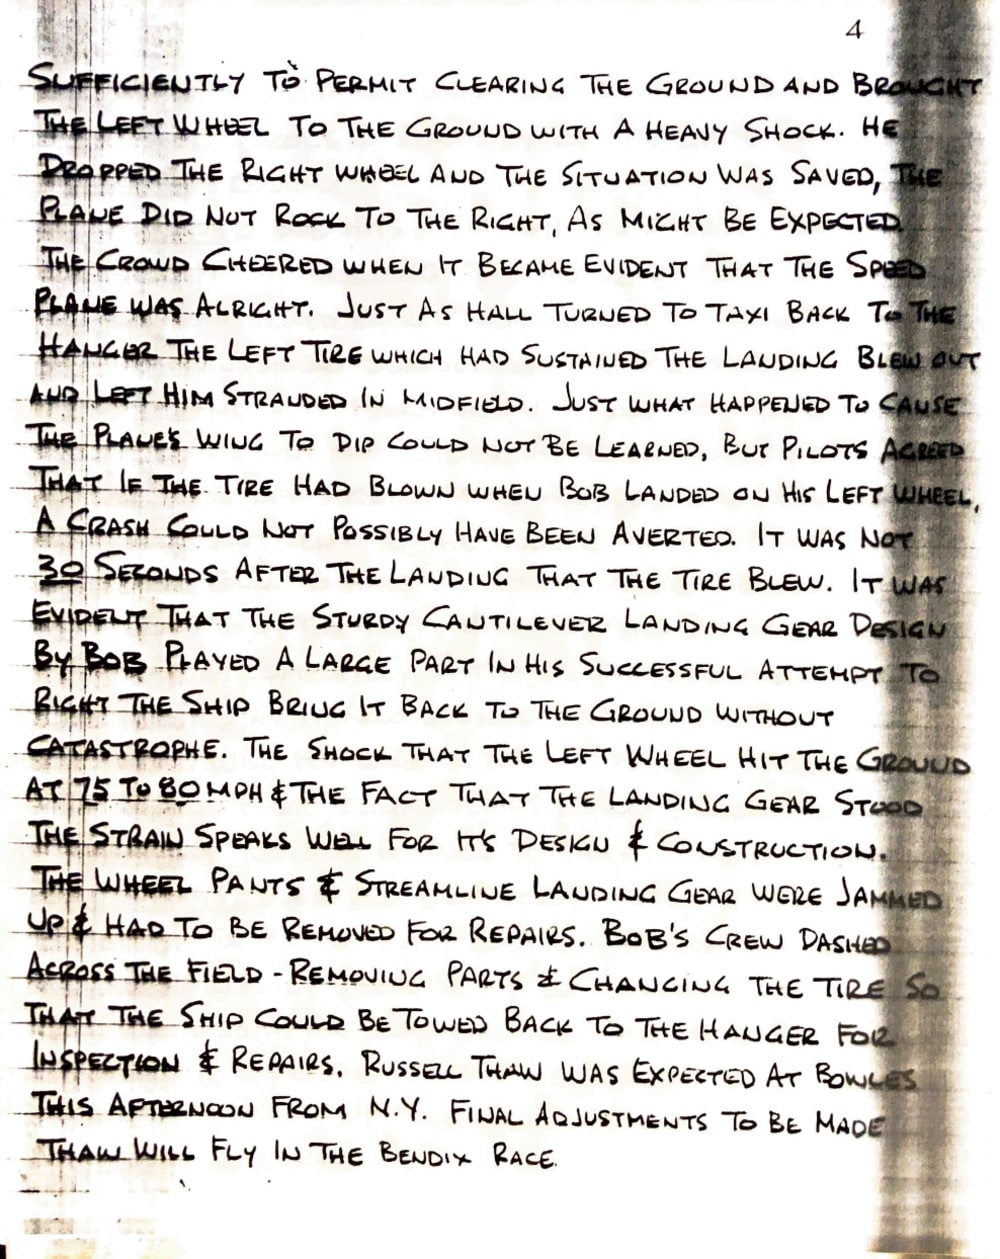 4
SUFFICIENTLY TO PERMIT CLEARING THE GROUND AND BROUGHT
THE LEFT WHEEL TO THE GROUND WITH A HEAVY SHOCK. HE
DROPPED THE RIGHT WHEEL AND THE SITUATION WAS SAVED, THE
PLANE DID NOT ROCK TO THE RIGHT, AS MIGHT BE EXPECTED.
THE CROWD CHEERED WHEN IT BECAME EVIDENT THAT THE SPEED
PLANE WAS ALRIGHT. JUST AS HALL TURNED TO TAXI BACK TO THE
HANGER THE LEFT TIRE WHICH HAD SUSTAINED THE LANDING BLEW OUT
AND LEFT HIM STRANDED IN MIDFIELD. JUST WHAT HAPPENED TO CAUSE
THE PLANE'S WING TO DIP COULD NOT BE LEARNED, BUT PILOTS AGREED
THAT IF THE TIRE HAD BLOWN WHEN BOB LANDED ON HIS LEFT WHEEL,
A CRASH COULD NOT POSSIBLY HAVE BEEN AVERTED. IT WAS NOT
30 SECONDS AFTER THE LANDING THAT THE TIRE BLEW. IT WAS
EVIDENT THAT THE STURDY CANTILEVER LANDING GEAR DESIGN
BY BOB PLAYED A LARGE PART IN HIS SUCCESSFUL ATTEMPT TO
RIGHT THE SHIP BRING IT BACK TO THE GROUND WITHOUT
CATASTROPHE. THE SHOCK THAT THE LEFT WHEEL HIT THE GROUND
AT 75 TO 80 MPH & THE FACT THAT THE LANDING GEAR STOOD
THE STRAIN SPEAKS WELL FOR IT'S DESIGN & CONSTRUCTION.
THE WHEEL PANTS & STREAMLINE LANDING GEAR WERE JAMMED
UP & HAD TO BE REMOVED FOR REPAIRS. BOB'S CREW DASHED
ACROSS THE FIELD - REMOVING PARTS & CHANGING THE TIRE SO
THAT THE SHIP COULD BE TOWED BACK TO THE HANGER FOR
INSPECTION & REPAIRS. RUSSELL THAW WAS EXPECTED AT BOWLES
THIS AFTERNOON FROM N.Y. FINAL ADJUSTMENTS TO BE MADE
THAW WILL FLY IN THE BENDIX RACE.